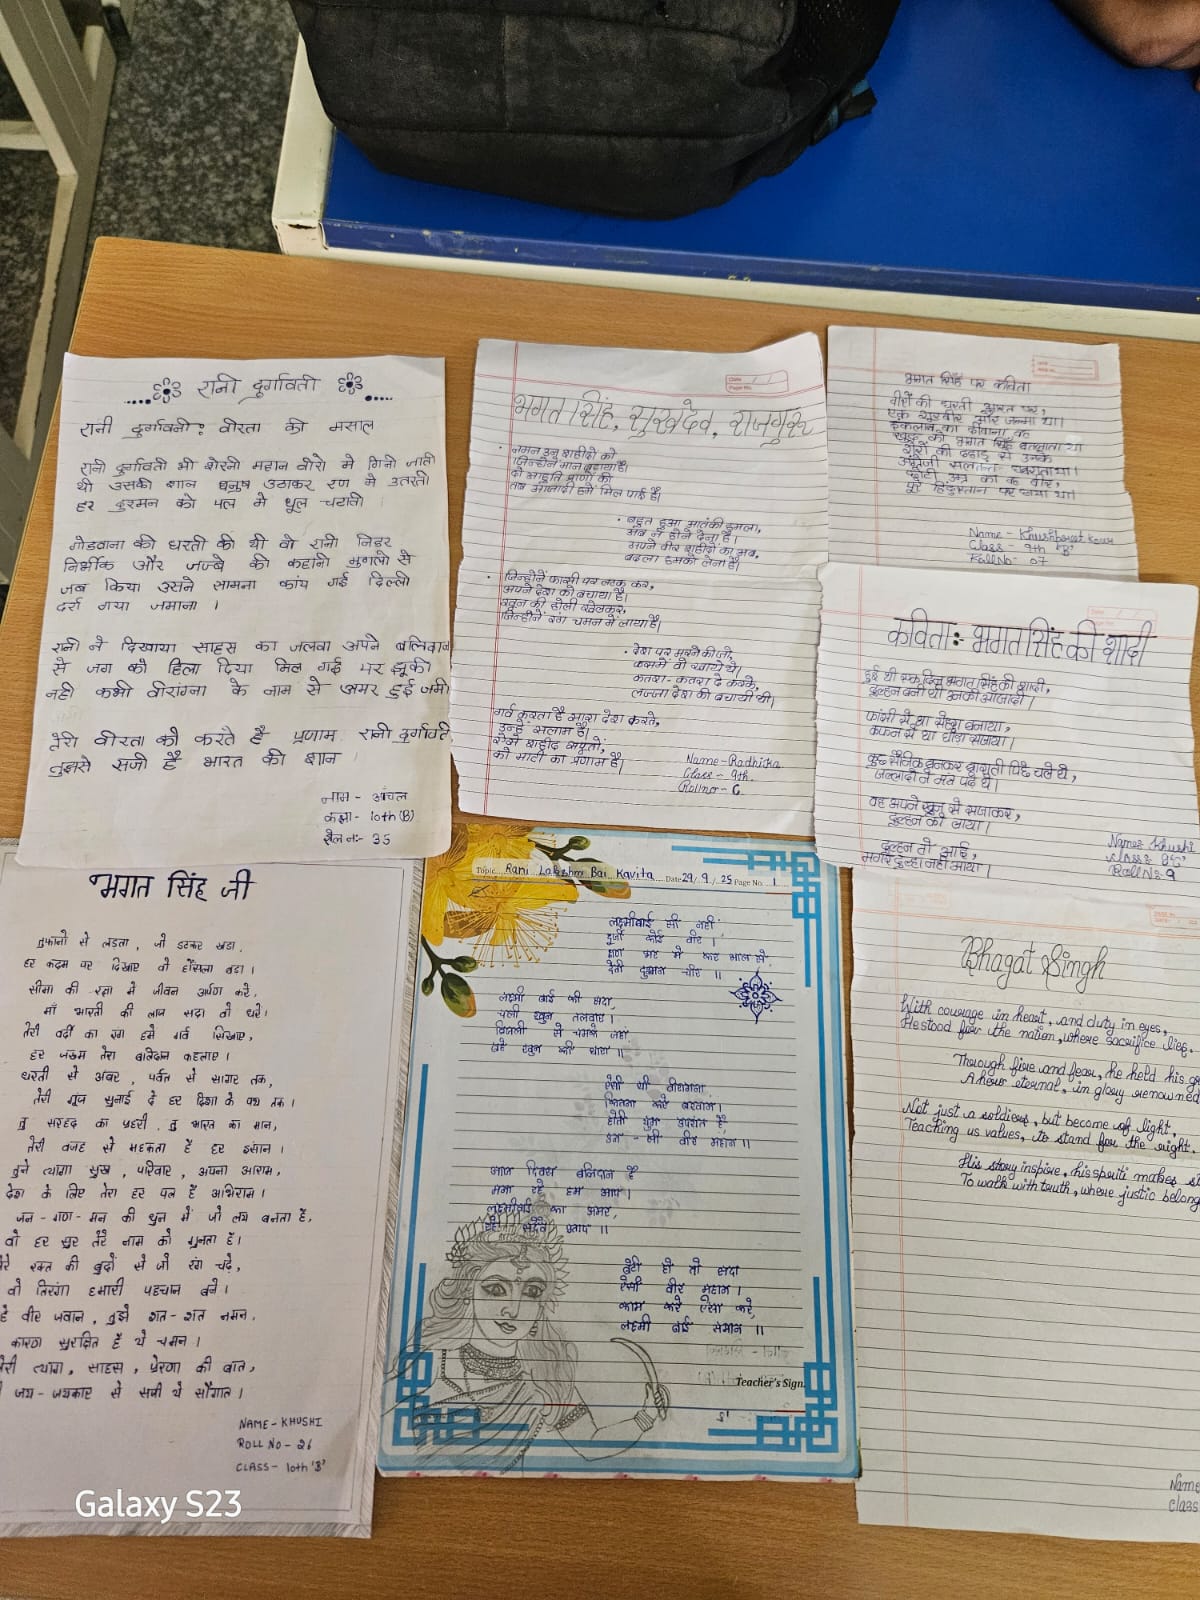 रानी दुर्गावती
रानी दुर्गावती: वीरता की मसाल
रानी दुर्गावती भी शेरनी महान वीरो मे गिनी जाती
थी उसकी शान धनुष उठाकर रण मे उतरती
हर दुश्मन को पल मे धूल चटाती
गोडवाना की धरती की थी वो रानी निडर
निर्भीक और जज्बे की कहानी मुगलो से
जब किया उसने सामना कांप गई दिल्ली
दर्रा गया जमाना ।
रानी ने दिखाया साहस का जलवा अपने बलिदान
से जग को हिला दिया मिल गई पर झूकी
नही कभी वीरांगना के नाम से अमर हुई जमी
तेरी वीरता को करते है प्रणाम रानी दुर्गावती
तुझसे सजी है भारत की शान ।
नाम - आंचल
कक्षा - 10th (B)
रोल न:- 35
Date
Page No.
भगत सिंह, सुखदेव, राजगुरु
नमन उन शहीदों को
जिन्होंने मान बढ़ाया है।
दी आहुति प्राणों की
तब आजादी हमें मिल पाई है।
बहुत हुआ आतंकी हमला,
अब न होने देना है।
अपने वीर शहीदों का अब,
बदला हमको लेना है।
जिन्होंने फांसी पर लटक कर,
अपने देश को बचाया है।
खून की होली खेलकर,
जिन्होंने रंग चमन में लाया है।
देश पर मरने की जो,
कसमें वो खाये थे।
कतरा-कतरा दे करके,
लज्जा देश की बचायी थी।
गर्व करता है सारा देश करते,
इन्हें सलाम है।
ऐसे शहीद सपूतों,
को माटी का प्रणाम है।
Name - Radhika
Class - 9th
Rollno - 6
भगत सिंह पर कविता
वीरों की धरती भारत पर,
एक शूरवीर और जन्मा था।
इंकलाब का दीवाना वह
खुद को भगत सिंह बतलाता था
शेरों की दहाड़ से उसके
अंग्रेजी सल्तनत घबराता था।
छोटी उम्र का वह वीर,
पूरे हिंदुस्तान पर छाया था।
Name - Khushpreet Kaur
Class - 9th 'B'
Roll No - 07
कविता:- भगत सिंह की शादी
हुई थी एक दिन भगत सिंह की शादी,
दुल्हन बनी थी उनकी आजादी।
फांसी से था सेहरा बनाया,
कफन से था घोड़ा सजाया।
कुछ सैनिक बनकर बाराती पिछे चले थे,
जल्लादों ने मंत्र पढ़े थे।
वह अपने खून से सजाकर,
दुल्हन को लाया।
दुल्हन तो आई,
मगर दुल्हा नहीं आया।
Name: Khushi
Roll No - 9
भगत सिंह जी
तूफानो से लड़ता, जो डटकर खड़ा,
हर कदम पर दिखाए वो हौसला बड़ा।
सीमा की रक्षा में जीवन अर्पण करे,
माँ भारती की लाज सदा वो धरे।
तेरी वर्दी का रंग हमे गर्व सिखाए,
हर जख्म तेरा बलिदान कहलाए।
धरती से अंबर, पर्वत से सागर तक,
तेरी गूंज सुनाई दे हर दिशा के पथ तक।
तु सरहद का प्रहरी, तु भारत का मान,
तेरी वजह से महकता है हर इंसान।
तुने त्यागा सुख, परिवार, अपना आराम,
देश के लिए तेरा हर पल है अभिराम।
जन-गण-मन की धुन में जो लय बनता है,
वो हर सुर तेरे नाम को गुनता है।
रक्त की बूंदों से जो रंग चढ़े,
वो तिरंगा हमारी पहचान बने।
वीर जवान, तुझे शत-शत नमन,
कारण सुरक्षित है ये चमन।
त्याग, साहस, प्रेरणा की बात,
जय-जयकार से सजी ये सौगात।
NAME - KHUSHI
ROLL NO - 26
CLASS - 10th 'B'
Topic Rani Lakshmi Bai Kavita Date 29/9/25 Page No. 1
लक्ष्मीबाई सी नहीं
दूजी कोई वीर।
क्षण भर मे कर भाल से
देती दुश्मन चीर॥
लक्ष्मी बाई की सदा,
चली खून तलवार।
बिजली से चमके जहां
बहे खून की धारा॥
ऐसी थी वीरांगना
कितना करे बखान।
होती धुम जयशत है
इन-सी वीर महान॥
आज दिवस बलिदान है
मना रहे हम आप।
लक्ष्मीबाई का अमर,
रहे सदैव प्रताप॥
बेटी हो तो सदा
ऐसी वीर महान।
काम करे ऐसा करे,
लक्ष्मी बाई समान॥
Teacher's Sign.
Bhagat Singh
With courage in heart, and duty in eyes,
He stood for the nation, where sacrifice lies,
Through fire and fear, he held his
A hero eternal, in glory renowned
Not just a soldiers, but become of light,
Teaching us values, to stand for the right.
His story inspire, his spriti makes
To walk with truth, where justic belong
Name
Class
Galaxy S23